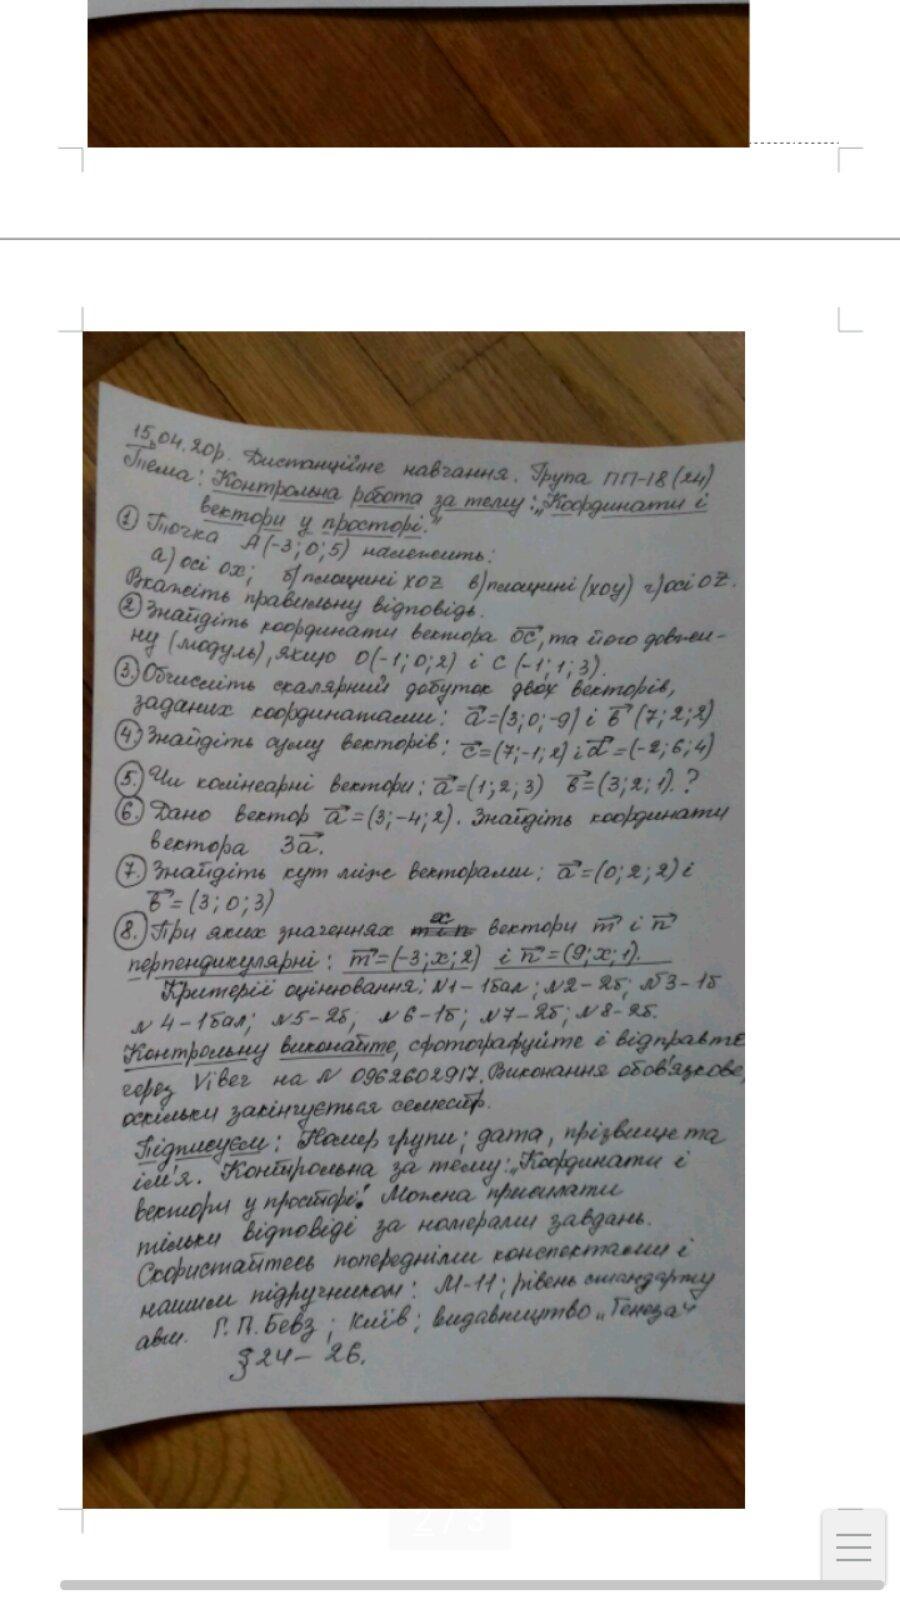 15.04.20р. Дистанційне навчання. Група ПП-18(24)
Тема: Контрольна робота за тему: „Координати і
вектори у просторі."
1 Точка А(-3; 0; 5) належить:
а) осі ох; б) площині xoz в) площині (xoy) г) осі OZ.
Вкажіть правильну відповідь.
2 Знайдіть координати вектора ОС, та його довжи-
ну (модуль), якщо О(-1; 0; 2) і С(-1; 1; 3).
3. Обчисліть скалярний добуток двох векторів,
заданих координатами: а=(3; 0; -9) і в (7; 2; 2)
4. Знайдіть суму векторів: с=(7; -1; 2) і d=(-2; 6; 4)
5. Чи колінеарні вектори: а=(1; 2; 3) в=(3; 2; 1). ?
6. Дано вектор а=(3; -4; 2). Знайдіть координати
вектора 3а.
7. Знайдіть кут між векторами: а=(0; 2; 2) і
в=(3; 0; 3)
8. При яких значеннях х вектори m і n
перпендикулярні: m=(-3; x; 2) і n=(9; x; 1).
Критерії оцінювання: №1-1бал; №2-2б; №3-1б
№4-1бал; №5-2б; №6-1б; №7-2б; №8-2б.
Контрольну виконайте, сфотографуйте і відправте
через Viber на № 0962602917. Виконання обов'язкове,
оскільки закінчується семестр.
Підписуєм: Номер групи; дата, прізвище та
ім'я. Контрольна за тему: „Координати і
вектори у просторі! Можна присилати
тільки відповіді за номерами завдань.
Скористайтесь попередніми конспектами і
нашим підручником: М-11; рівень стандарту
авт. Г.П. Бевз; Київ; видавництво „Генеза"
§24-26.
2 / 3